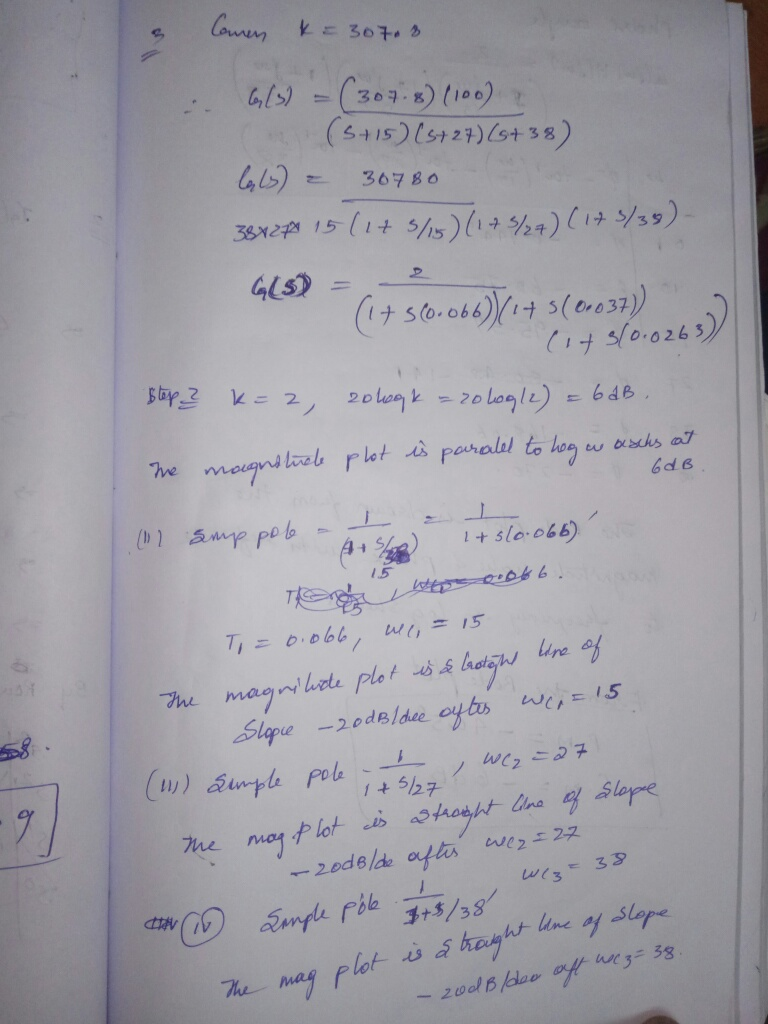 3 Given K = 307.8
∴ G(s) = (307.8) (100)
(S+15) (S+27) (S+38)
G(s) = 30780
38×27× 15 (1+ S/15) (1+ S/27) (1+ S/38)
G(S) = 2
(1+ S(0.066)) (1+ S(0.037))
(1+ S(0.0263))
Step 2 K = 2, 20logk = 20log(2) = 6dB.
The magnitude plot is parallel to log w at
6dB.
(II) Simp pole = 1 = 1
(1+ S/15) 1+ S(0.066)
T1 = 0.066, wc1 = 15
The magnitude plot is straight line of
Slope -20dB/dec after wc1 = 15
58.
(III) Simple pole 1 , wc2 = 27
1+ S/27
9
The mag plot is straight line of slope
-20dB/de after wc2 = 27
(iv) Simple pole 1 , wc3 = 38
1+S/38
The mag plot is straight line of slope
-20dB/dec aft wc3 = 38.